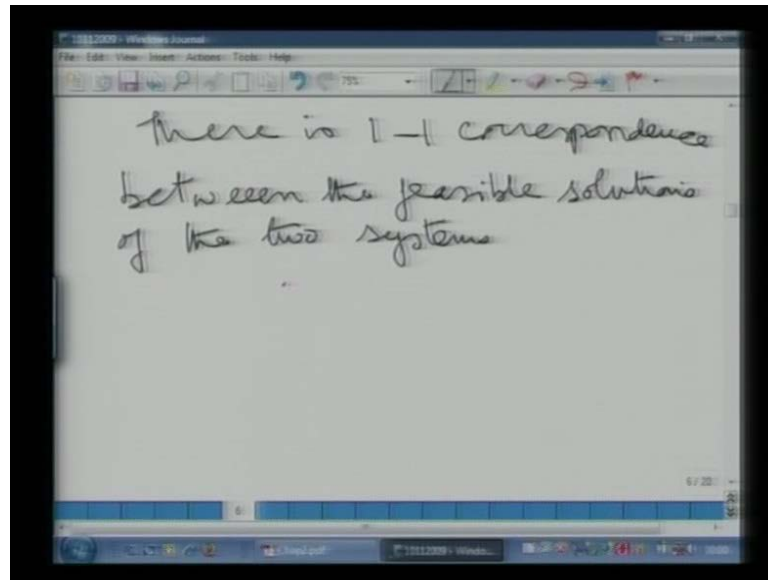 10112009 - Windows Journal
File Edit View Insert Actions Tools Help
75%
There is 1-1 correspondence
between the feasible solutions
of the two systems
6 / 20
6
10112009 - Windo...
10:00